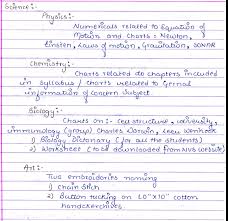 Science:-
Physics:-
Numericals related to Equation of
Motion and Charts:- Newton,
Einstein, Laws of motion, Gravitation, SONAR
Chemistry:-
Charts related to chapters included
in syllabus / charts related to General
information of concern subject
Biology:-
Charts on:- Cell structure, diversity,
immunology (group) Charles Darwin,
i) Biology Dictionary (for all the students)
2) Worksheet (to be downloaded from NVS website)
Art:-
Two embroidories naming
1) Chain Stich
2) Button tucking on 10"x10" cotton
handkerchives.